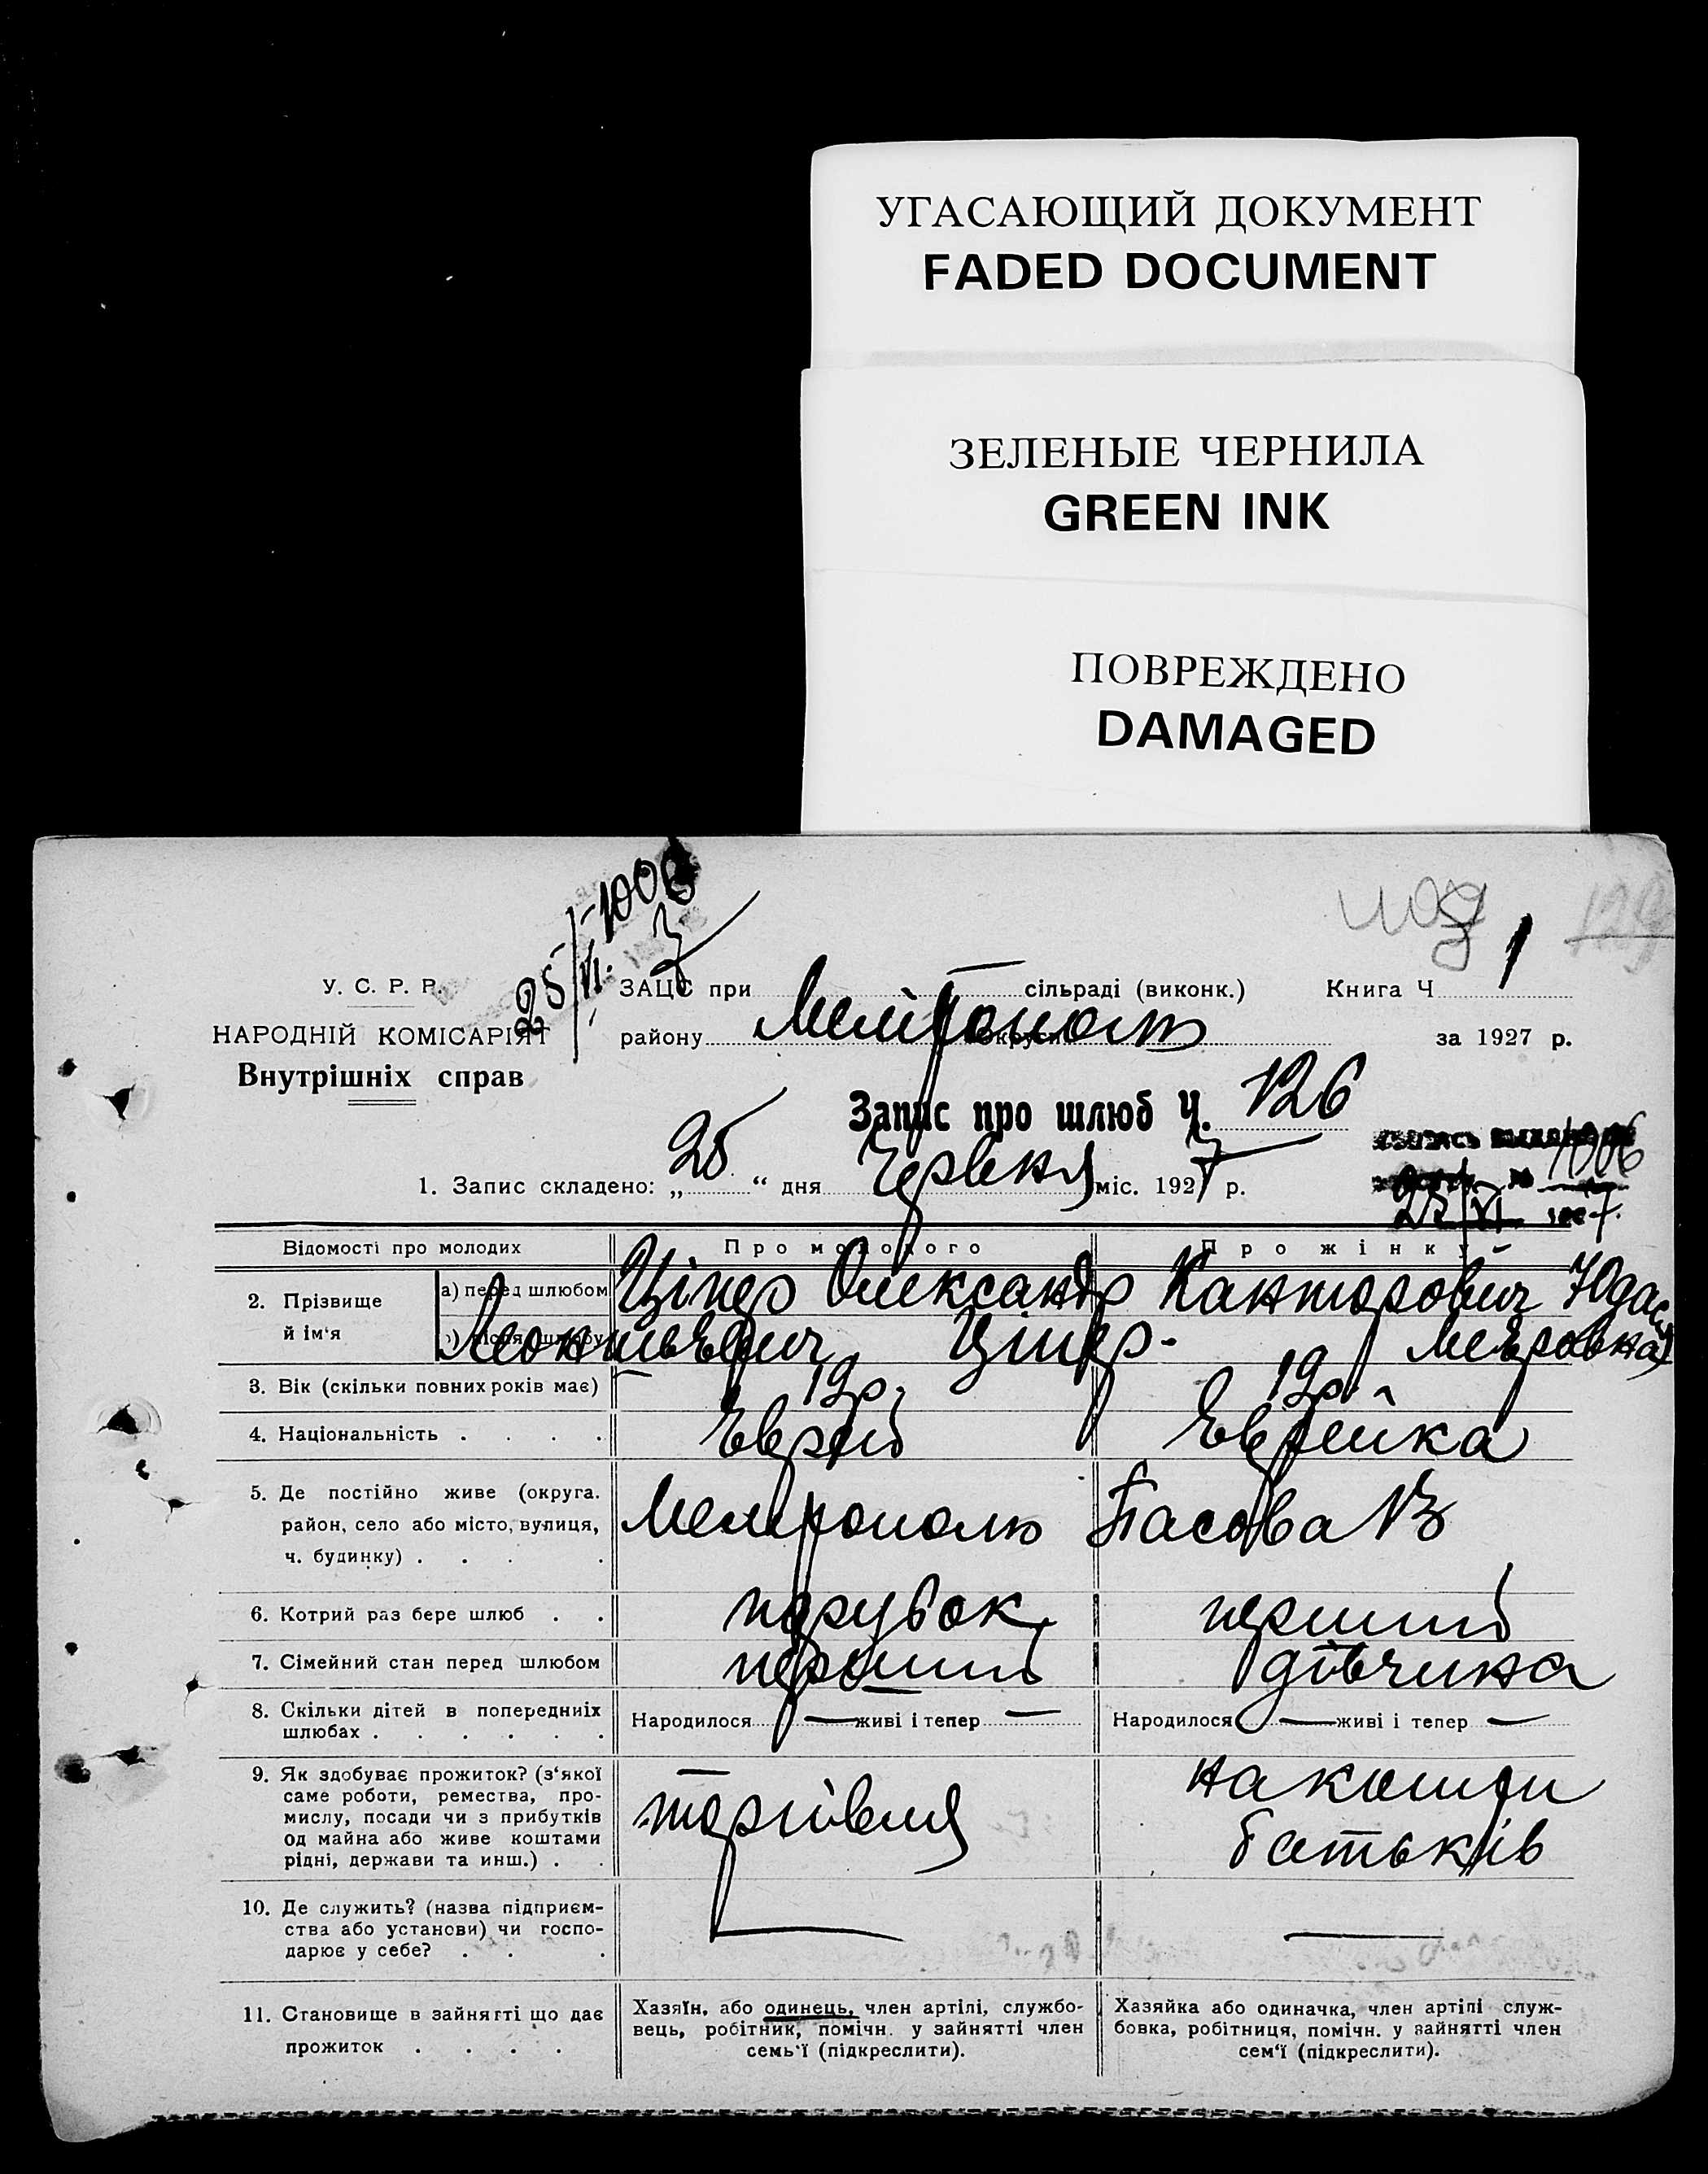 УГАСАЮЩИЙ ДОКУМЕНТ
FADED DOCUMENT
ЗЕЛЕНЫЕ ЧЕРНИЛА
GREEN INK
ПОВРЕЖДЕНО
DAMAGED
25/VI-1006
7
У. С. Р. Р.
НАРОДНІЙ КОМІСАРІЯТ
Внутрішніх справ
ЗАЦС при сільраді (виконк.)
району Мелітополь Округи
Книга Ч 1
за 1927 р.
Запис про шлюб Ч. 126
1. Запис складено: „25“ дня Червня міс. 1927 р.
1006
25/VI 7.
Відомості про молодих Про молодого Про жінку
2. Прізвище й ім‘я
а) перед шлюбом Ціпер Олександр Канторович Юдася
б) після шлюбу Ціпер- Меєровна
3. Вік (скільки повних років має) 19р. 19р.
4. Національність . . . . Єврей Єврейка
5. Де постійно живе (округа. район, село або місто, вулиця, ч. будинку) . . . . Мелітополь
6. Котрий раз бере шлюб . . парубок перший
7. Сімейний стан перед шлюбом перший дівчина
8. Скільки дітей в попередніх шлюбах . . . . . . Народилося — живі і тепер — Народилося — живі і тепер —
9. Як здобуває прожиток? (з‘якої саме роботи, ремества, промислу, посади чи з прибутків од майна або живе коштами рідні, держави та инш.) . . торгівля на кошти батьків
10. Де служить? (назва підприємства або установи) чи господарює у себе? . . . — —
11. Становище в зайнятті що дає прожиток . . . .
Хазяїн, або одинець, член артілі, службовець, робітник, помічн. у зайнятті член семь‘ї (підкреслити).
Хазяйка або одиначка, член артілі службовка, робітниця, помічн. у зайнятті член сем‘ї (підкреслити).